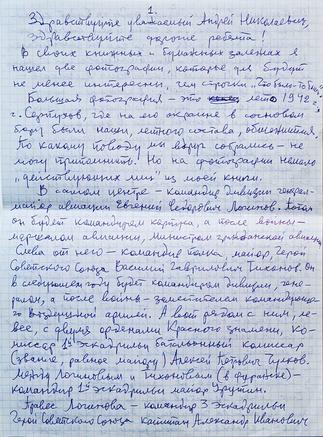 1.
Здравствуйте уважаемый Андрей Николаевич,
здравствуйте дорогие ребята!
В своих книжных и бумажных залежах я
нашел две фотографии, которые для будут
не менее интересны, чем строчки
Большая фотография – это лето 1942 г.
г. Серпухов, где на его окраине в сосновом
бору были наши, летного состава, общежития.
По какому поводу мы вдруг собрались – не
могу припомнить. Но на фотографии немало
„действующих лиц" из моей книги.
В самом центре – командир дивизии генерал-
майор авиации Евгений Федорович Логинов. Потом
он будет командиром корпуса, а после войны –
маршалом авиации, министром гражданской авиации.
Слева от него – командир полка, майор, Герой
Советского Союза Василий Гаврилович Тихонов. Он
в следующем году будет командиром дивизии, гене-
ралом, а после войны – заместителем командующе-
го Воздушной армией. А вот рядом с ним, ле-
вее, с двумя орденами Красного знамени, ко-
миссар 1й эскадрильи батальонный комиссар
(звание, равное майору) Алексей Петрович
Между Логиновым и Тихоновым (в фуражке) –
командир 1й эскадрильи майор
Правее Логинова – командир 3 эскадрильи
Герой Советского Союза капитан Александр Иванович